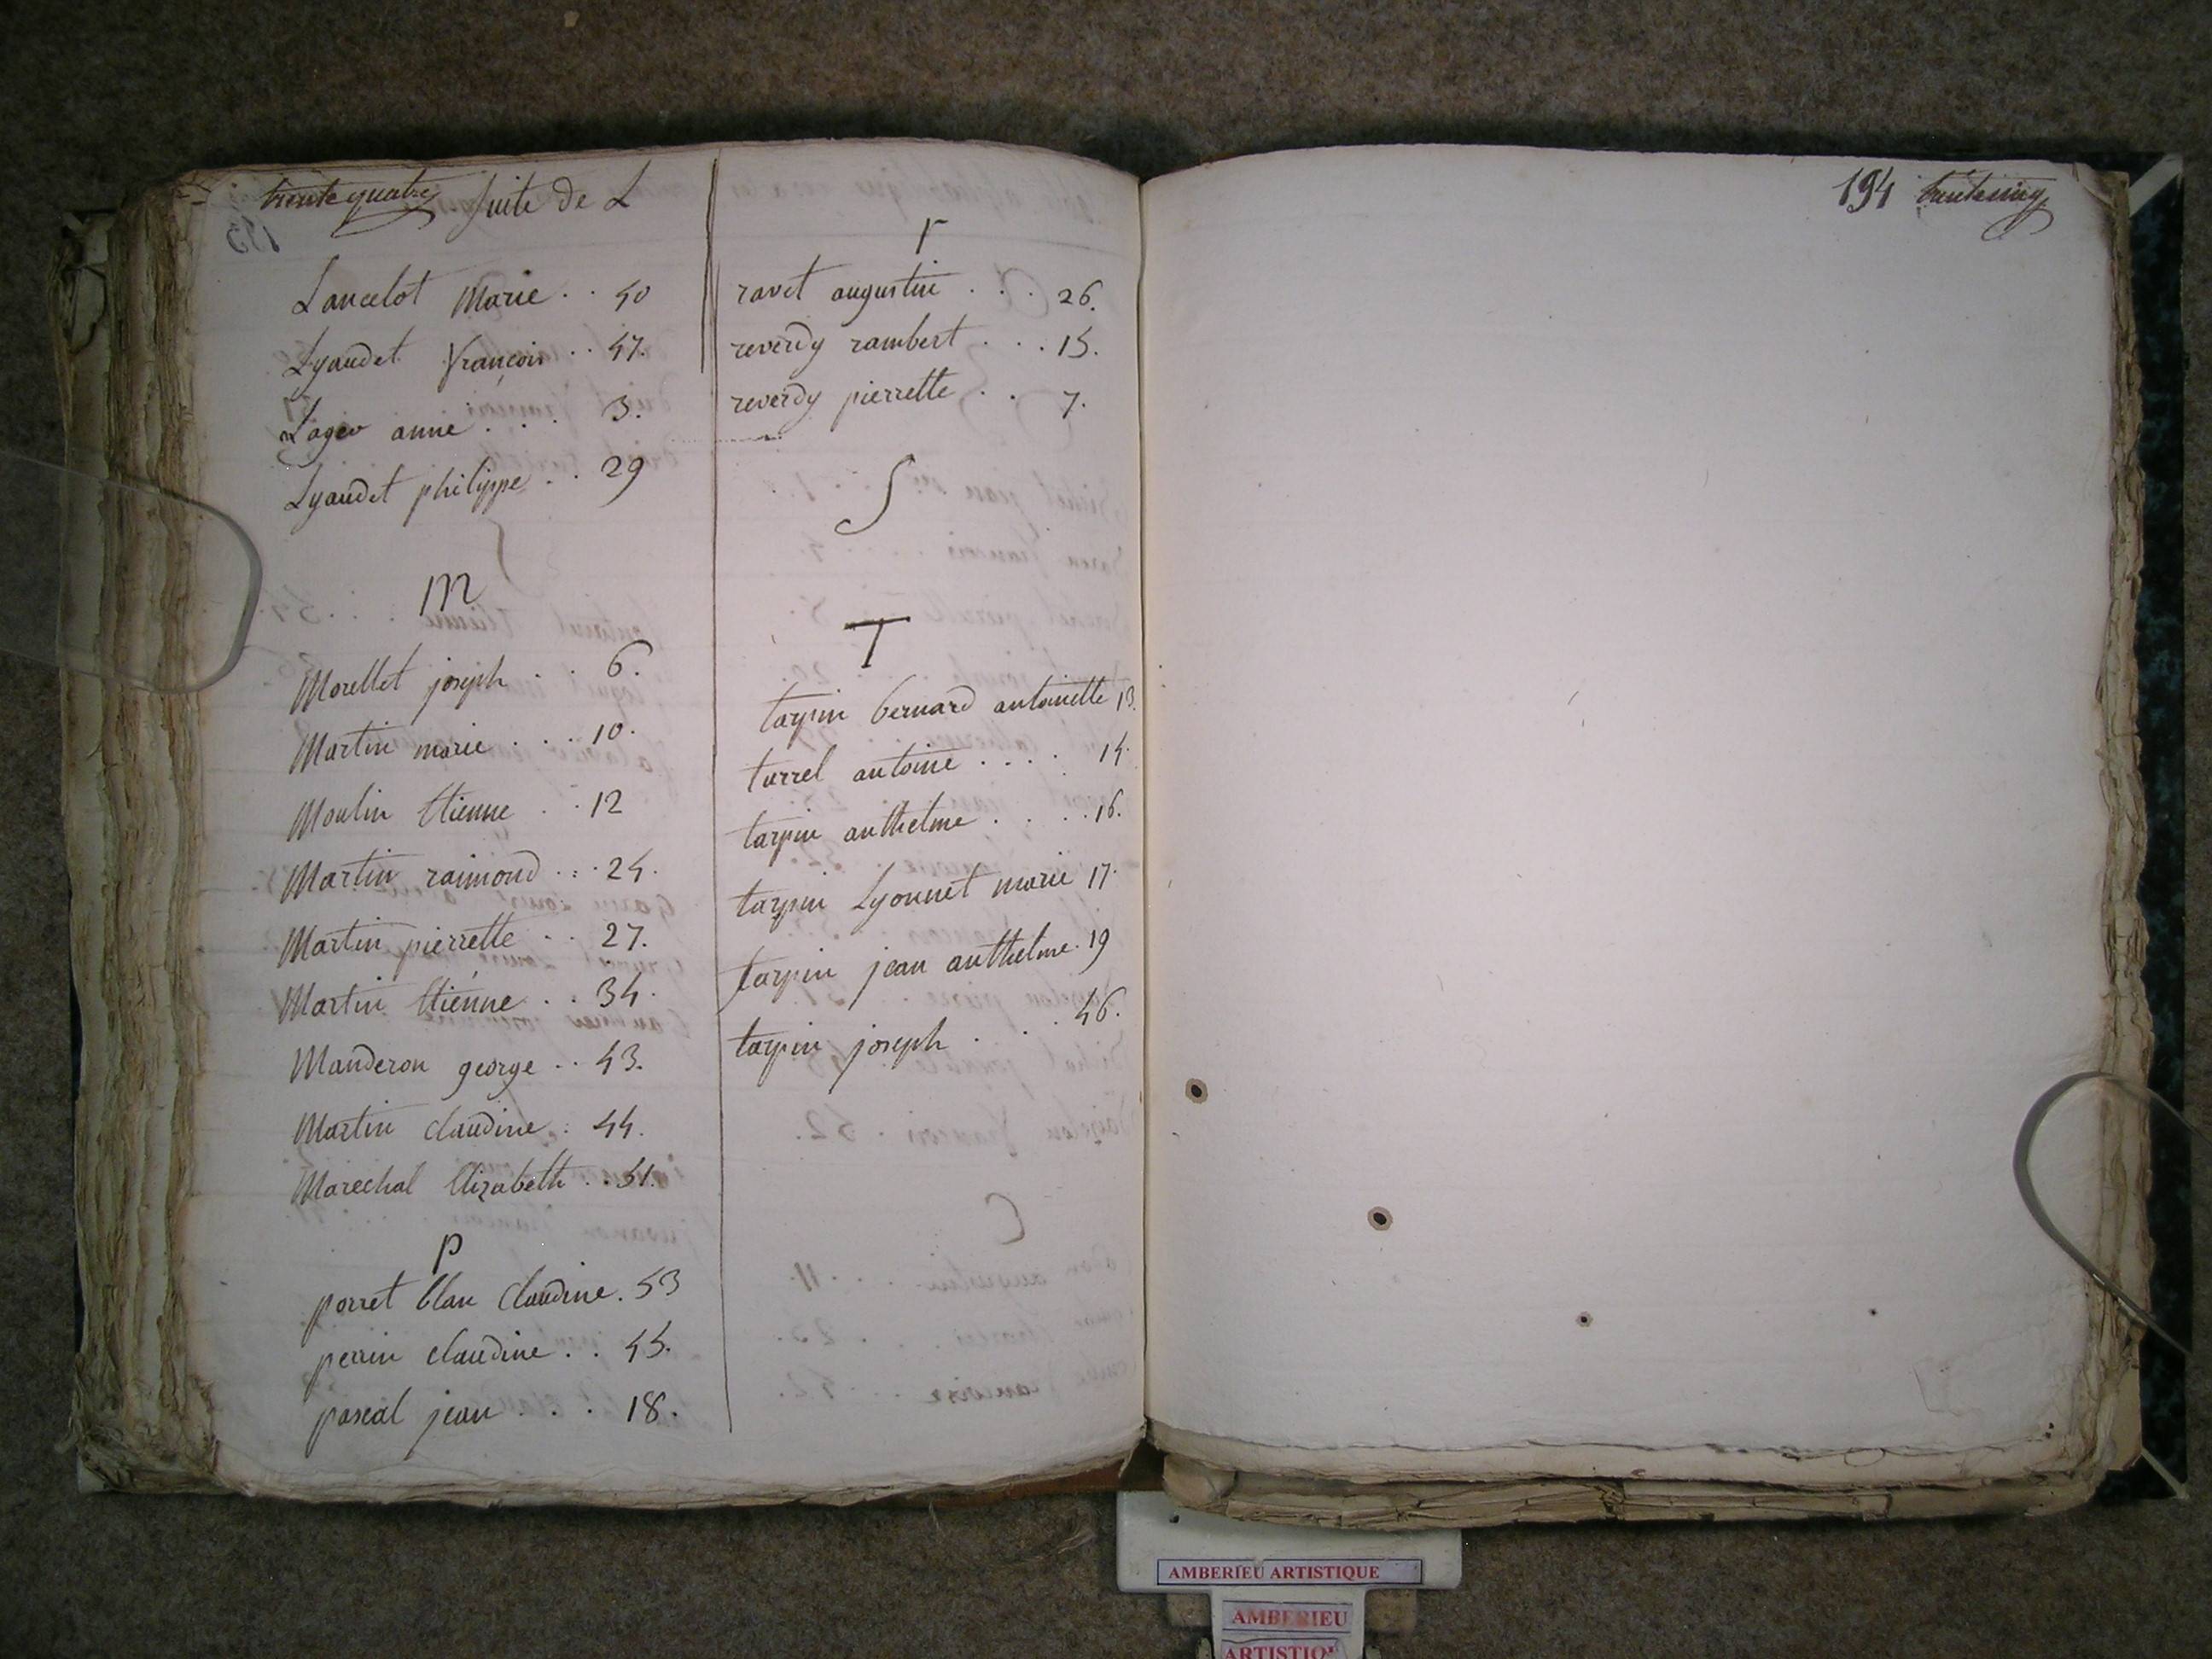 trente quatre suite de L
Lancelot Marie . . 40
Lyaudet françois . . 47.
Lageo anne . . . 3.
Lyaudet philippe . . 29
M
Morellet joseph . . 6.
Martin marie . . . 10.
Moulin Etienne . . 12
Martin raimond . . . 24.
Martin pierrette . . 27.
Martin Etienne . . 34.
Manderon george . . 43.
Martin claudine . 44.
Marechal Elizabeth . . 51.
P
porret blan Claudine . 53
perrin claudine . . 45.
pascal jean . . . 18.
r
ravet augustin . . . 26.
reverdy rambert . . . 15.
reverdy pierrette . . 7.
S
T
tarpin bernard antoinette 13.
turrel antoine . . . . 14.
tarpin anthelme . . . . 16.
tarpin Lyonnet marie 17.
tarpin jean anthelme . 19
tarpin joseph . . . 46.
194 trente cinq
AMBERIEU ARTISTIQUE
AMBERIEU
ARTISTIQUE